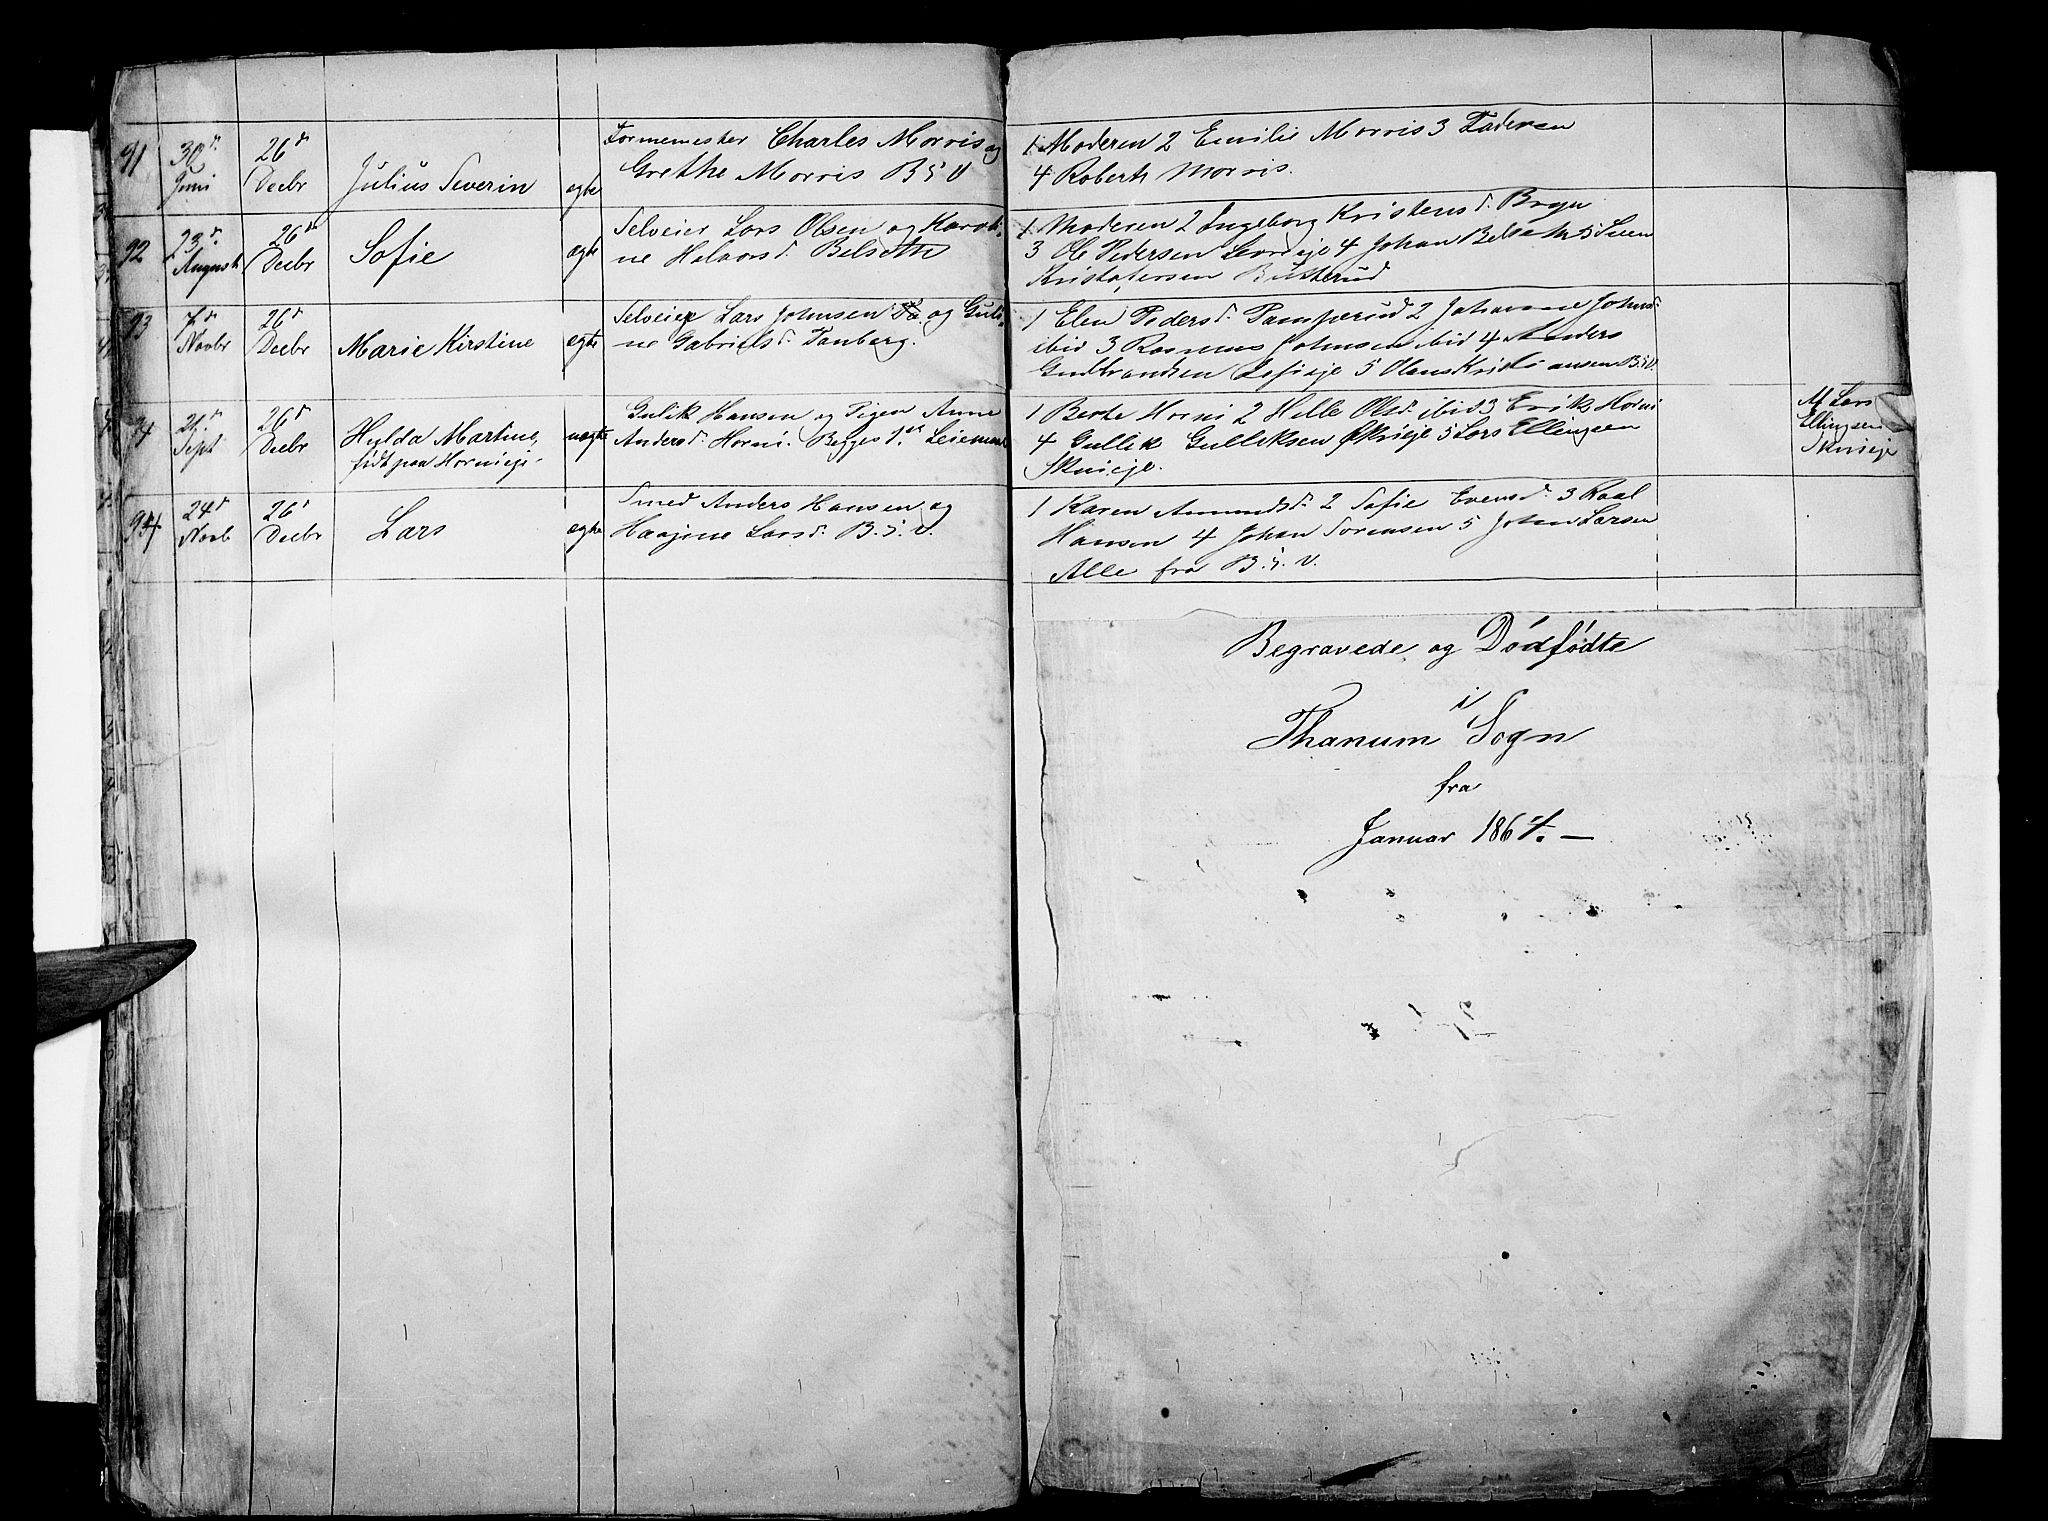 91 30 d. Juni 26 d Decbr Julius Severin ægte
Formemester Charles Morris og
Grethe Morris B i V
1 Moderen 2 Emilie Morris 3 Faderen
4 Robert Morris.
92 23 d. August 26 d Decbr Sofie ægte
Selveier Lars Olsen og Karoli-
ne Halvorsd. Belseth
1 Moderen 2 Ingeborg Kristensd. Bryn
3 Ole Pedersen 4 Johan Belseth 5
Kristofersen Butterud
93 7 d Novbr 26 d Decbr Marie Kirstine ægte
Selveier Lars Johnsen og Guli-
ne Gabrielsd. Tanberg.
1 Elen Pedersd. Pamperud 2 Johanne Johnsd.
ibid 3 Rasmus Johnsen ibid 4 Anders
Gudbrandsen 5 Olaus Kristiansen B i V.
94 21 d. Sept 26 d Decbr Hylda Martine, uægte
født paa Hornieje.
Gulik Hansen og Pigen Anne
Andersd. Horni. Begges 1st Leiermaal
1 Berte Horni 2 Helle Olsd. ibid 3 Erik Horni
4 Gullik Gulliksen 5 Lars Ellingsen
Skuieje.
M Lars
Ellingsen
Skuieje
94 24 d Novb 26 d Decbr Lars ægte
Smed Anders Hansen og
Haagine Larsd. B. i. V.
1 Karen Amundsd. 2 Sofie Evensd. 3 Roal
Hansen 4 Johan Sørensen 5 John Larsen
Alle fra B. i. V.
Begravede og Dødfødte
i
Thanum Sogn
fra
Januar 1864. —